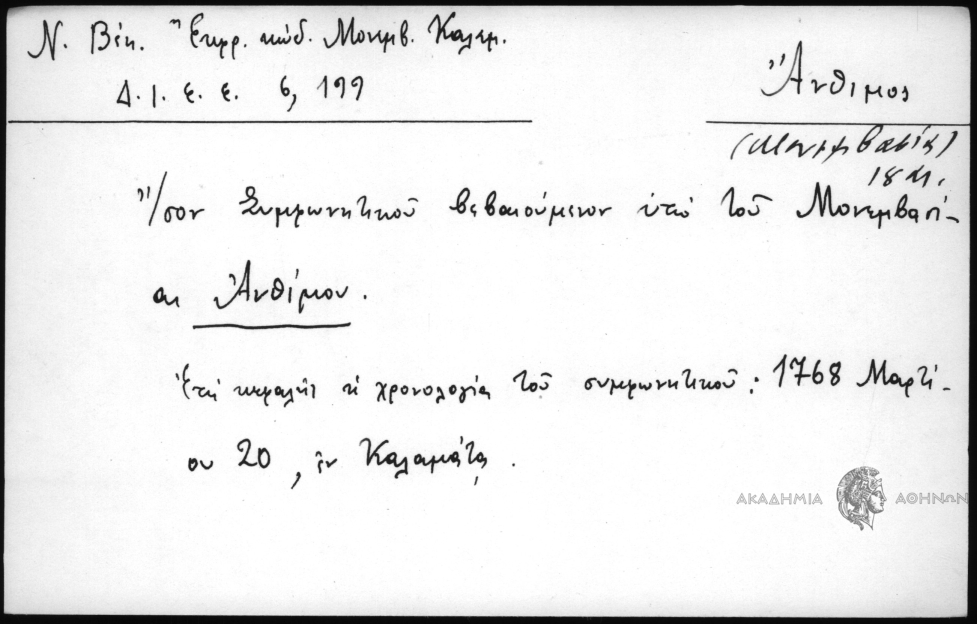 Ν. Βέη. Ἔκφρ. κώδ. Μονεμβ. Καλαμ.
Δ. Ι. Ε. Ε. 6, 199
Ἄνθιμος
(Μονεμβασίας)
18 αἰ.
Ἴσον Συμφωνητικοῦ βεβαιούμενον ὑπὸ τοῦ Μονεμβασί-
ας Ἀνθίμου.
Ἐπὶ κεφαλῆς ἡ χρονολογία τοῦ συμφωνητικοῦ: 1768 Μαρτί-
ου 20, ἐν Καλαμάτᾳ.
ΑΚΑΔΗΜΙΑ ΑΘΗΝΩΝ